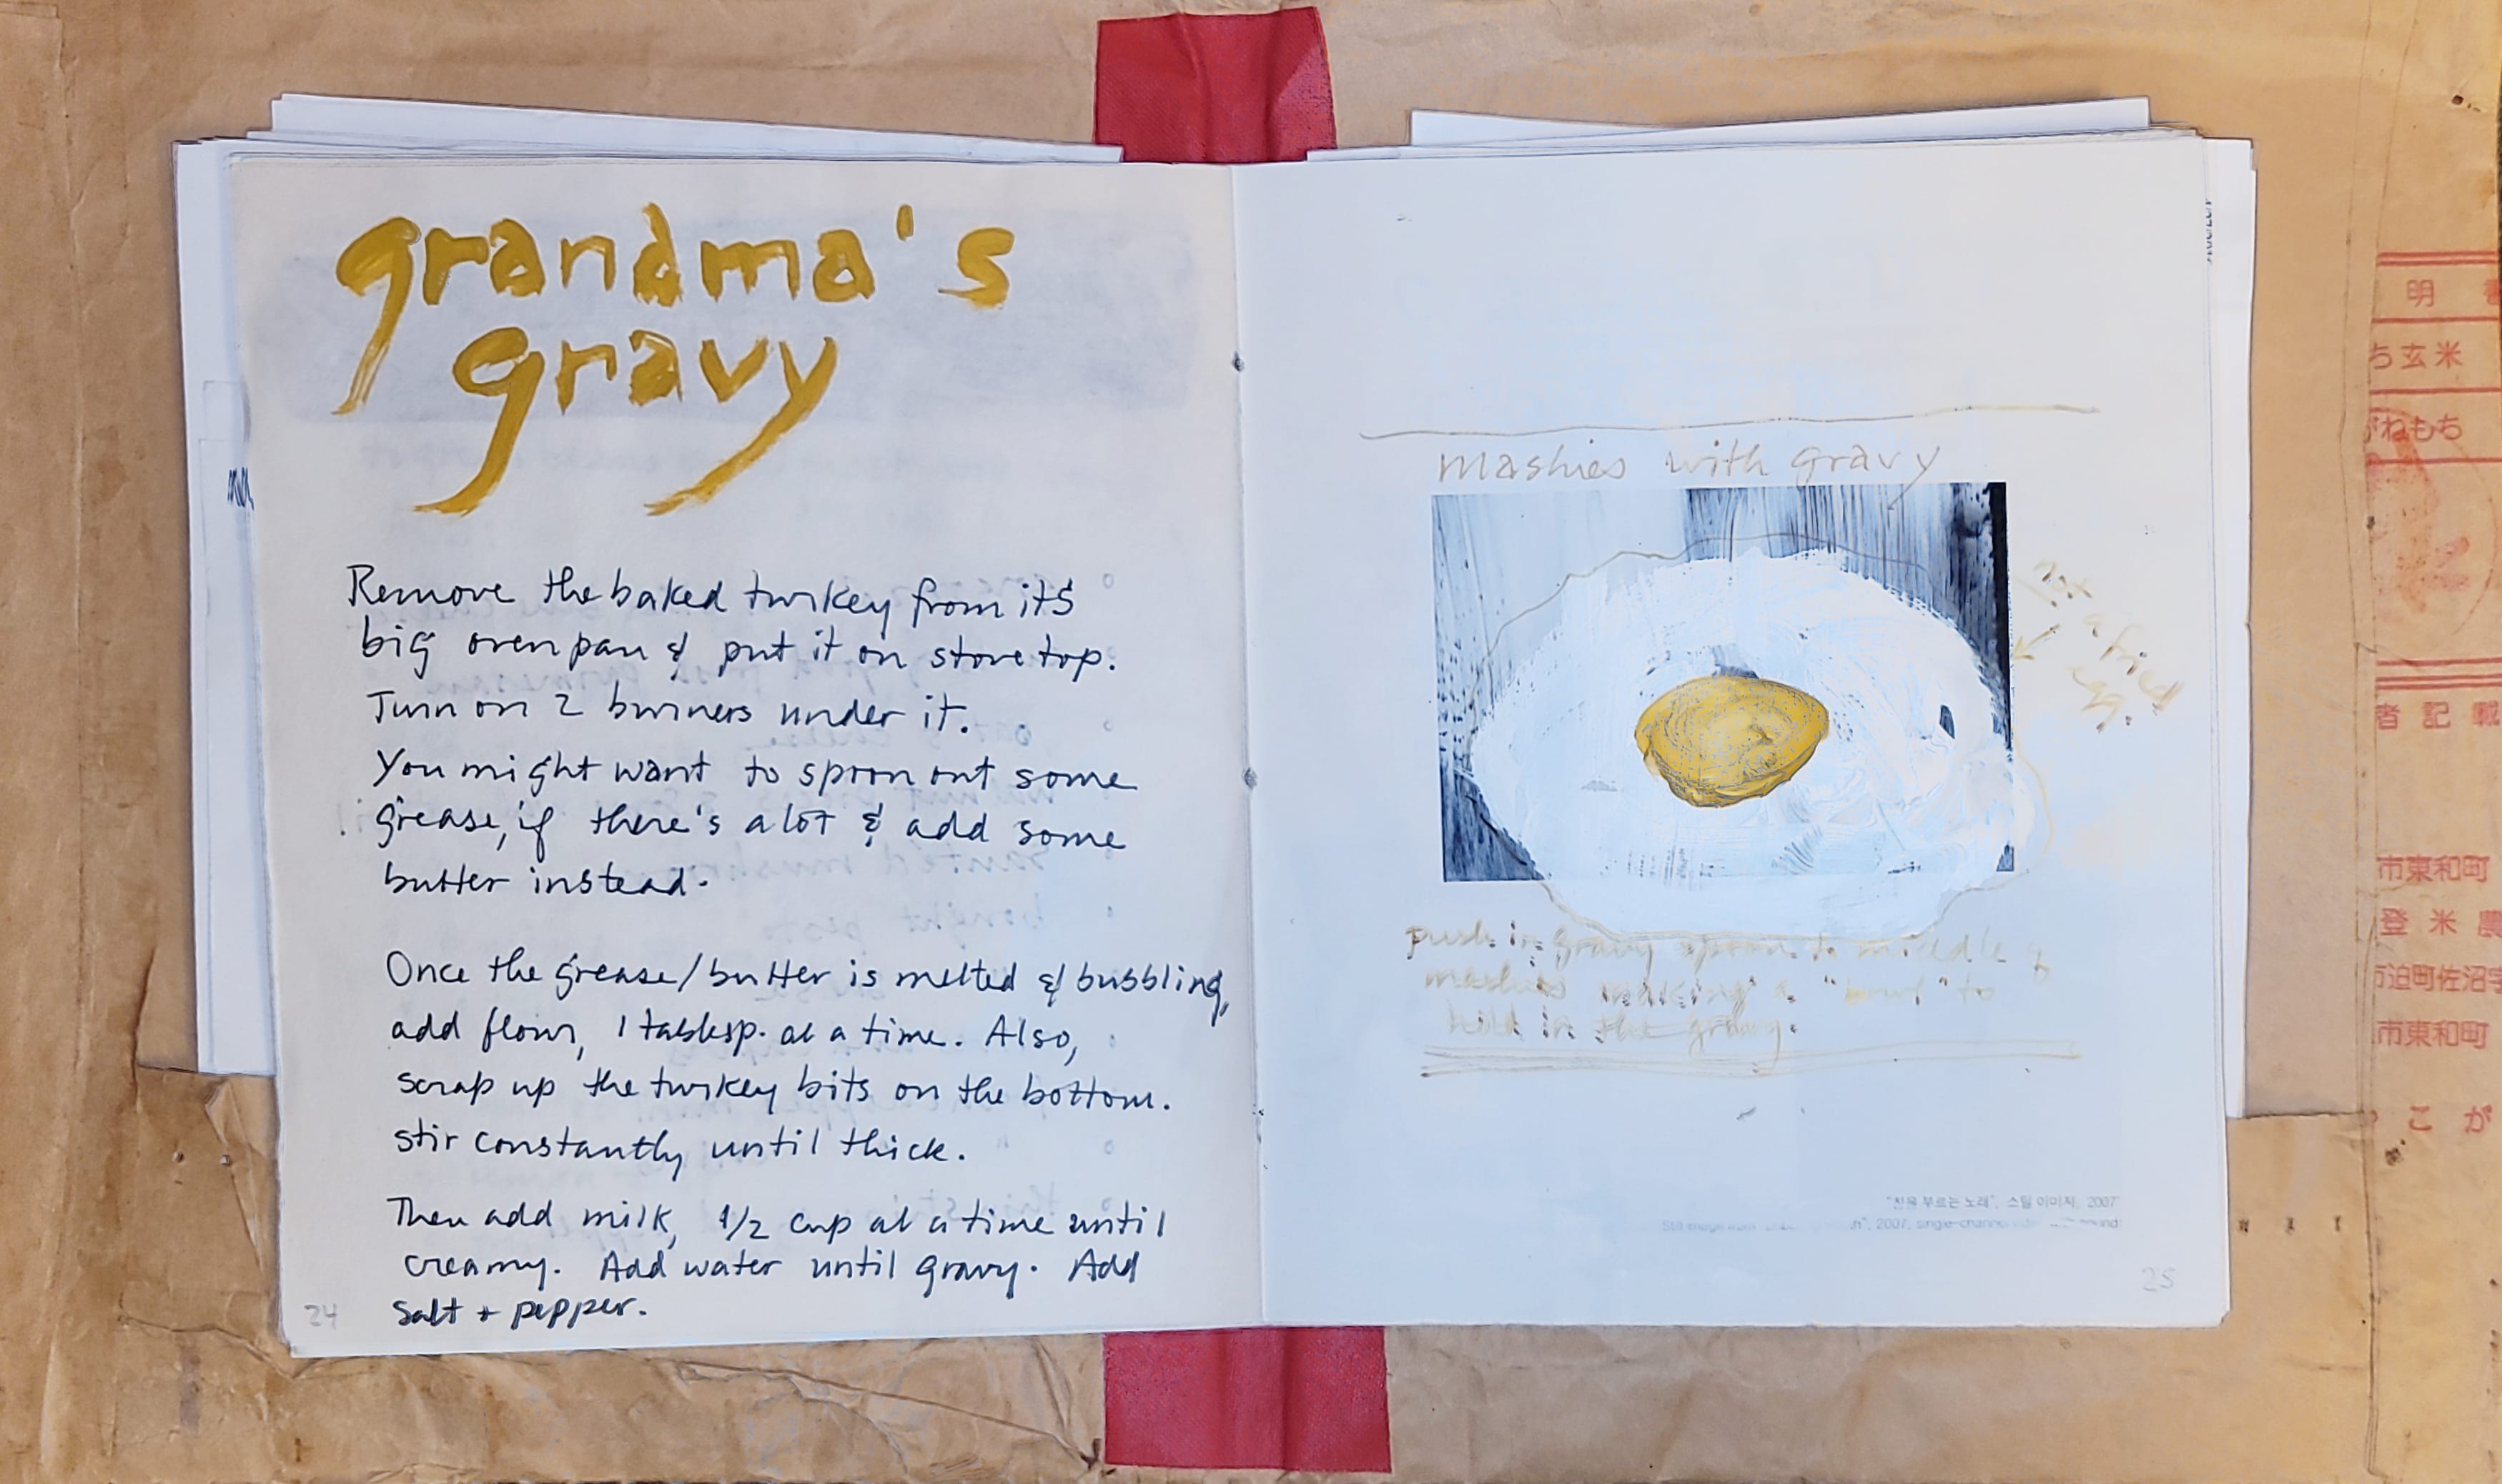 grandma's
gravy
Remove the baked turkey from it's
big oven pan & put it on stove top.
Turn on 2 burners under it.
You might want to spoon out some
grease, if there's a lot & add some
butter instead.
Once the grease/butter is melted & bubbling,
add flour, 1 tablesp. at a time. Also,
scrap up the turkey bits on the bottom.
stir constantly until thick.
Then add milk, 1/2 cup at a time until
creamy. Add water until gravy. Add
salt + pepper.
24
mashies with gravy
not a fried
egg.
push in gravy spoon to middle of
mashies making a "bowl" to
hold in the gravy.
스틸 이미지, 2007
2007, single-channel
25
明
ち玄米
がねもち
者 記 載
市東和町
登 米 農
市東和町
こ が